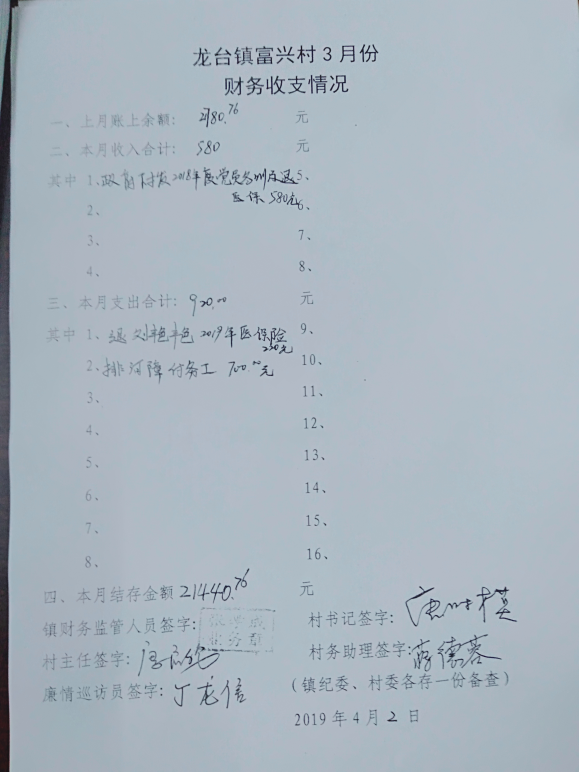 龙台镇富兴村3月份
财务收支情况
一、上月账上余额: 21780.76 元
二、本月收入合计: 580 元
其中 1、政府付发2018年度党员 医保580元 5、
2、 6、
3、 7、
4、 8、
三、本月支出合计: 920.00 元
其中 1、退刘艳 2019年医保险 220元 9、
2、排河障付务工 700.00元 10、
3、 11、
4、 12、
5、 13、
6、 14、
7、 15、
8、 16、
四、本月结存金额 21440.76 元
镇财务监管人员签字: 村书记签字:
村主任签字: 村务助理签字: 蒋德蓉
廉情巡访员签字: 丁龙信 (镇纪委、村委各存一份备查)
2019年4月2日